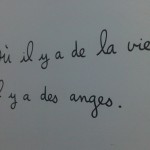 où il y a de la vie
il y a des anges.